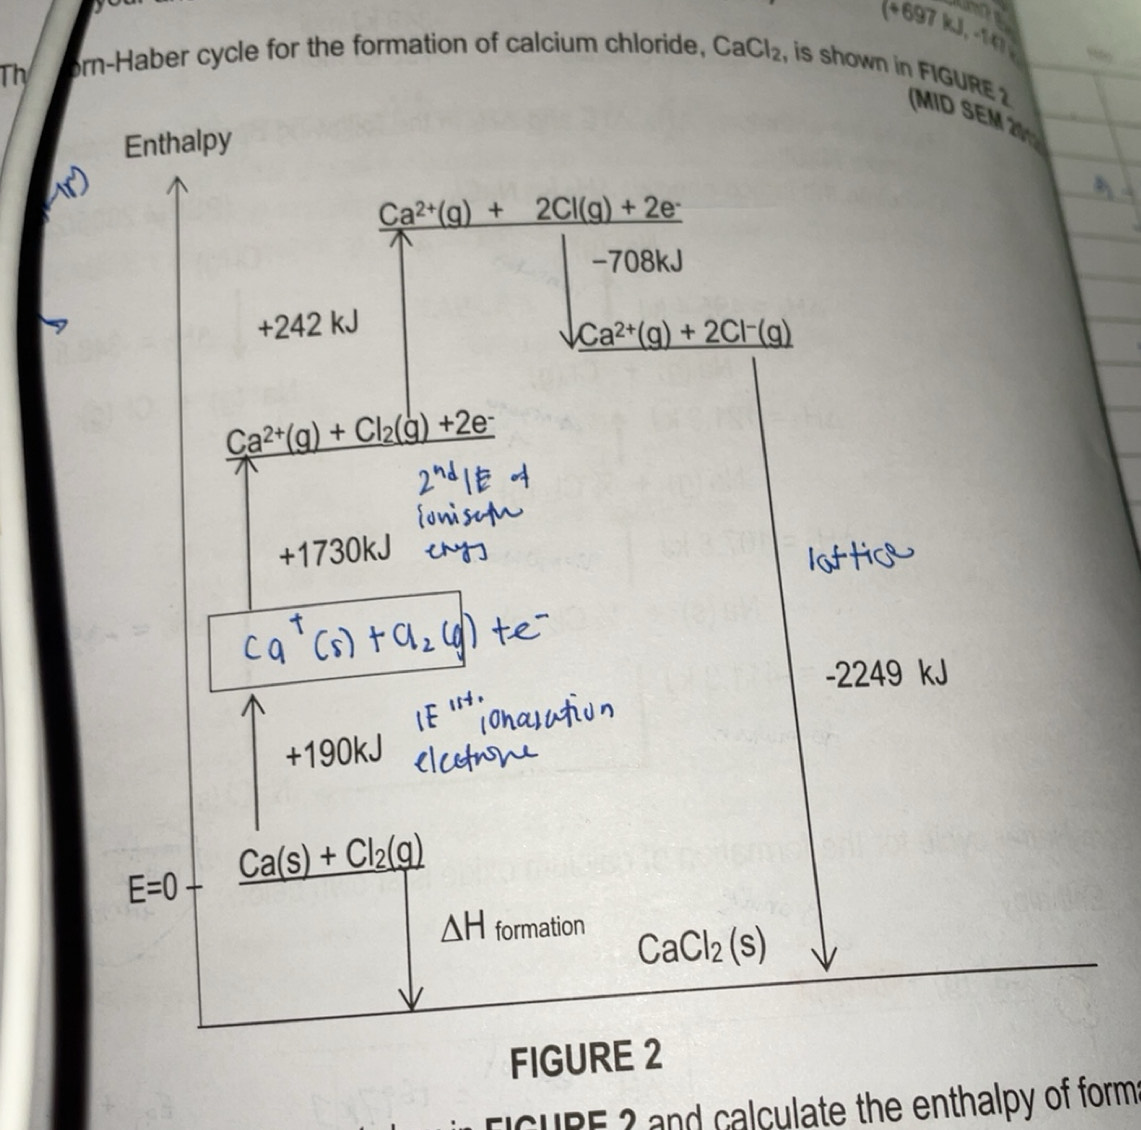 (+697 kJ, -147
Th orn-Haber cycle for the formation of calcium chloride, CaCl₂, is shown in FIGURE 2.
(MID SEM
Enthalpy
Ca²⁺(g) + 2Cl(g) + 2e⁻
−708kJ
+242 kJ
Ca²⁺(g) + 2Cl⁻(g)
Ca²⁺(g) + Cl₂(g) +2e⁻
2ⁿᵈ IE of
+1730kJ
lattice
Ca⁺(s) + Cl₂(g) + e⁻
-2249 kJ
IE 1st.
+190kJ
Ca(s) + Cl₂(g)
E=0
ΔH formation
CaCl₂ (s)
FIGURE 2
in FIGURE 2 and calculate the enthalpy of forma